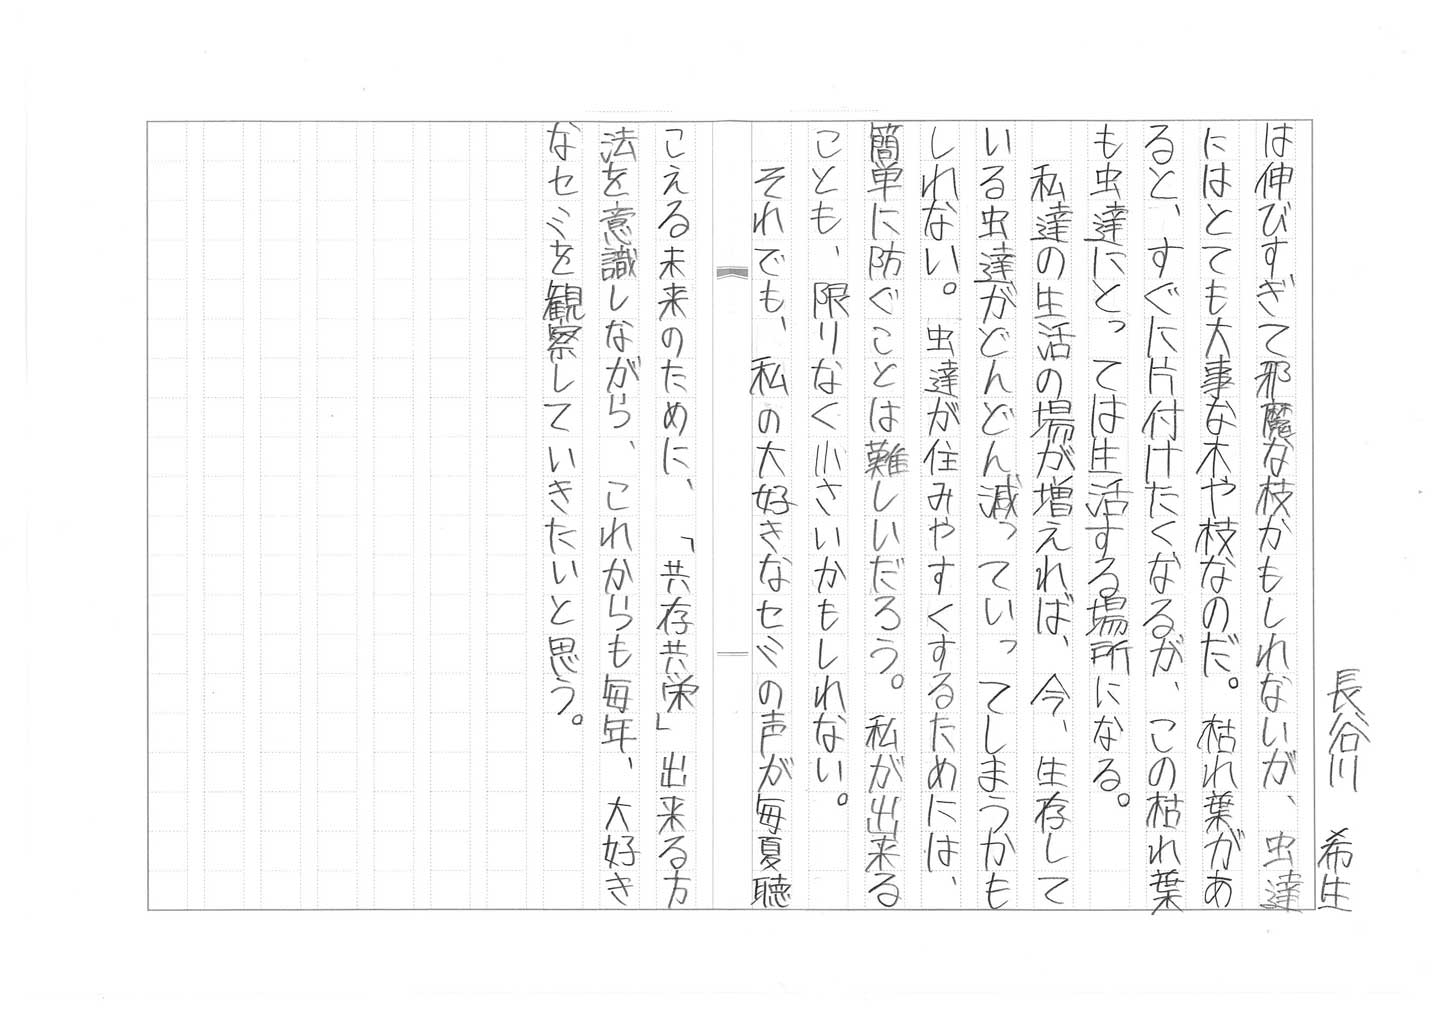 長谷川　希生
は伸びすぎて邪魔な枝かもしれないが、虫達
にはとても大事な木や枝なのだ。枯れ葉があ
ると、すぐに片付けたくなるが、この枯れ葉
も虫達にとっては生活する場所になる。
　私達の生活の場が増えれば、今、生存して
いる虫達がどんどん減っていってしまうかも
しれない。虫達が住みやすくするためには、
簡単に防ぐことは難しいだろう。私が出来る
ことも、限りなく小さいかもしれない。
　それでも、私の大好きなセミの声が毎夏聴
こえる未来のために、「共存共栄」出来る方
法を意識しながら、これからも毎年、大好き
なセミを観察していきたいと思う。